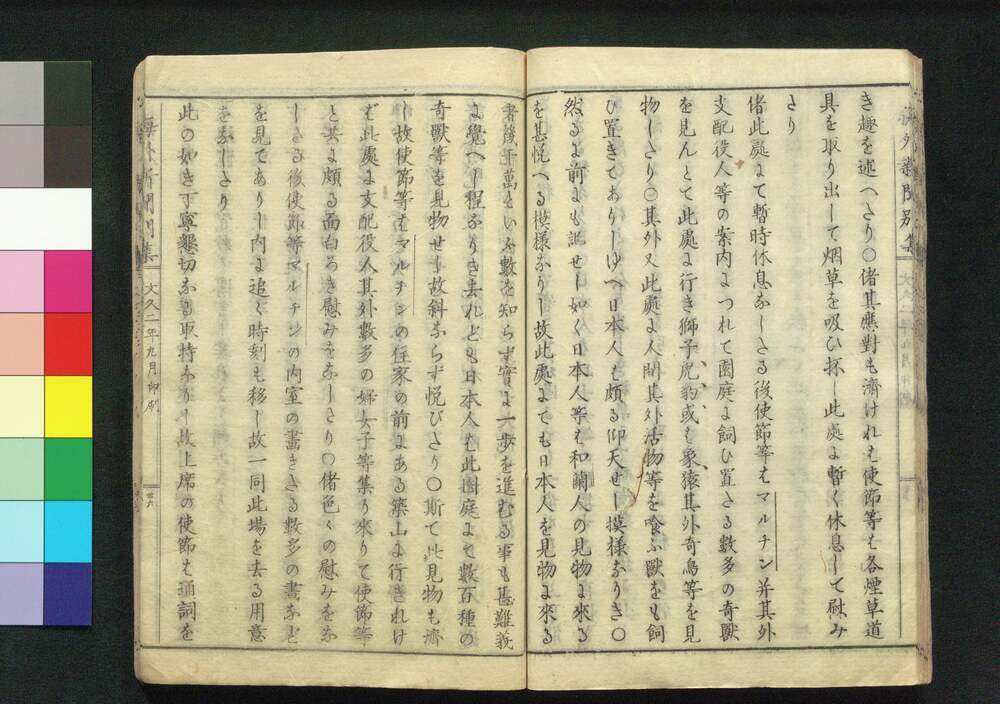 き趣を述へたり〇偖其應對も濟けれは使節等は各煙草道
具を取り出して烟草を吸ひ抔し此處に暫く休息して慰み
たり
偖此處にて暫時休息なしたる後使節等はマルチン并其外
支配役人等の案内につれて園庭に飼ひ置たる數多の奇獸
を見んとて此處に行き獅子虎豹或は象猿其外奇鳥等を見
物したり〇其外又此處に人間其外活物等を喰ふ獸をも飼
ひ置きてありしゆへ日本人も頗る仰天せし摸様なりき〇
然るに前にも誌せし如く日本人等は和蘭人の見物に來る
を甚悦へる模様なりし故此處にても日本人を見物に來る
者幾千萬といふ數を知らず實に一歩を進むる事も甚難義
に覺へし程なりき去れども日本人は此園庭にて數百種の
奇獸等を見物せし故斜ならず悦びたり〇斯て此見物も濟
し故使節等はマルチンの住家の前にある築山に行きけれ
ば此處に支配役人其外數多の婦女子等集り來りて使節等
と共に頗る面白ろき慰みをなしたり〇偖色々の慰みをな
したる後使節等マルチンの内室の畵きたる數多の畵など
を見てありし内に追々時刻も移し故一同此場を去る用意
をなしたり
此の如き丁寧懇切なる取持なりし故上席の使節は通詞を
海外新聞別集
文久二年九月印刷
廿六